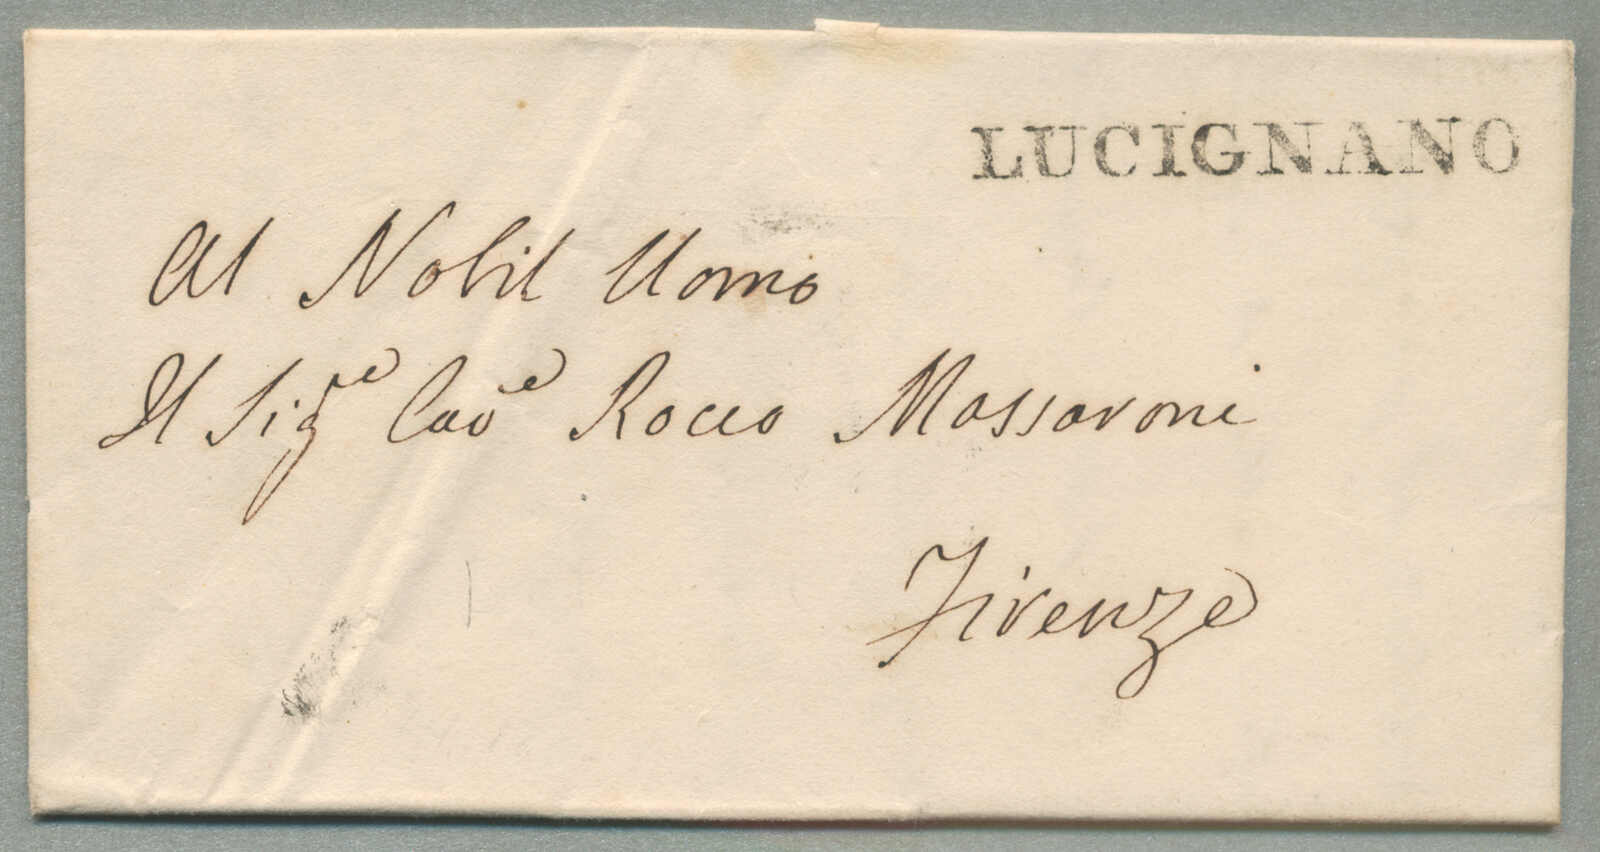 LUCIGNANO
Al Nobil Uomo
Il Sigre Cave Rocco Massaroni
Firenze